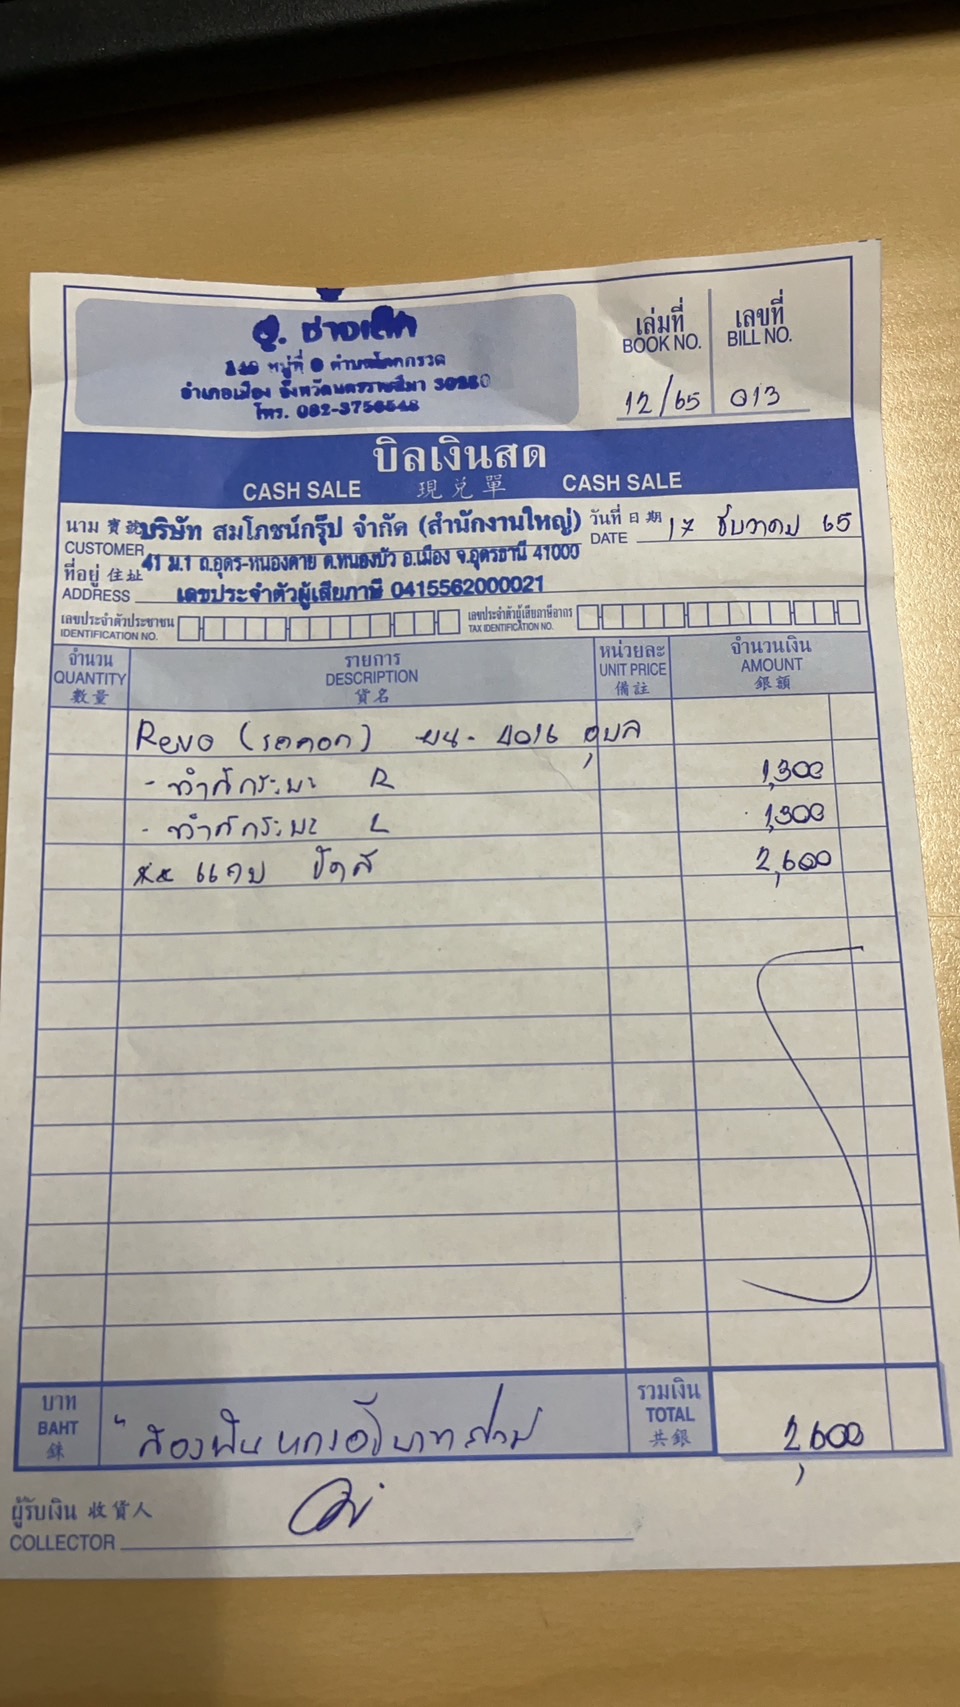 อู่. ช่างเลิศ
หมู่ที่ ตำบลโคกกรวด
อำเภอเมือง จังหวัดนครราชสีมา 30280
โทร. 082-3756548
เล่มที่ เลขที่
BOOK NO. BILL NO.
12/65 013
บิลเงินสด
CASH SALE 現兌單 CASH SALE
นาม 寶號 บริษัท สมโภชน์กรุ๊ป จำกัด (สำนักงานใหญ่) วันที่ 日期 17 ธันวาคม 65
CUSTOMER 41 ม.1 ถ.อุดร-หนองคาย ต.หนองบัว อ.เมือง จ.อุดรธานี 41000 DATE
ที่อยู่ 住址
ADDRESS เลขประจำตัวผู้เสียภาษี 0415562000021
เลขประจำตัวประชาชน เลขประจำตัวผู้เสียภาษีอากร
IDENTIFICATION NO. TAX IDENTIFICATION NO.
จำนวน รายการ หน่วยละ จำนวนเงิน
QUANTITY DESCRIPTION UNIT PRICE AMOUNT
數量 貨名 備註 銀額
Revo (รถคอก) ผน - 4016 อุบล
- ทำสีกระบะ R 1,300
- ทำสีกระบะ L 1,300
** แถม ขัดสี 2,600
บาท รวมเงิน
BAHT "สองพันหกร้อยบาทถ้วน TOTAL 2,600
銖 共銀
ผู้รับเงิน 收貨人
COLLECTOR